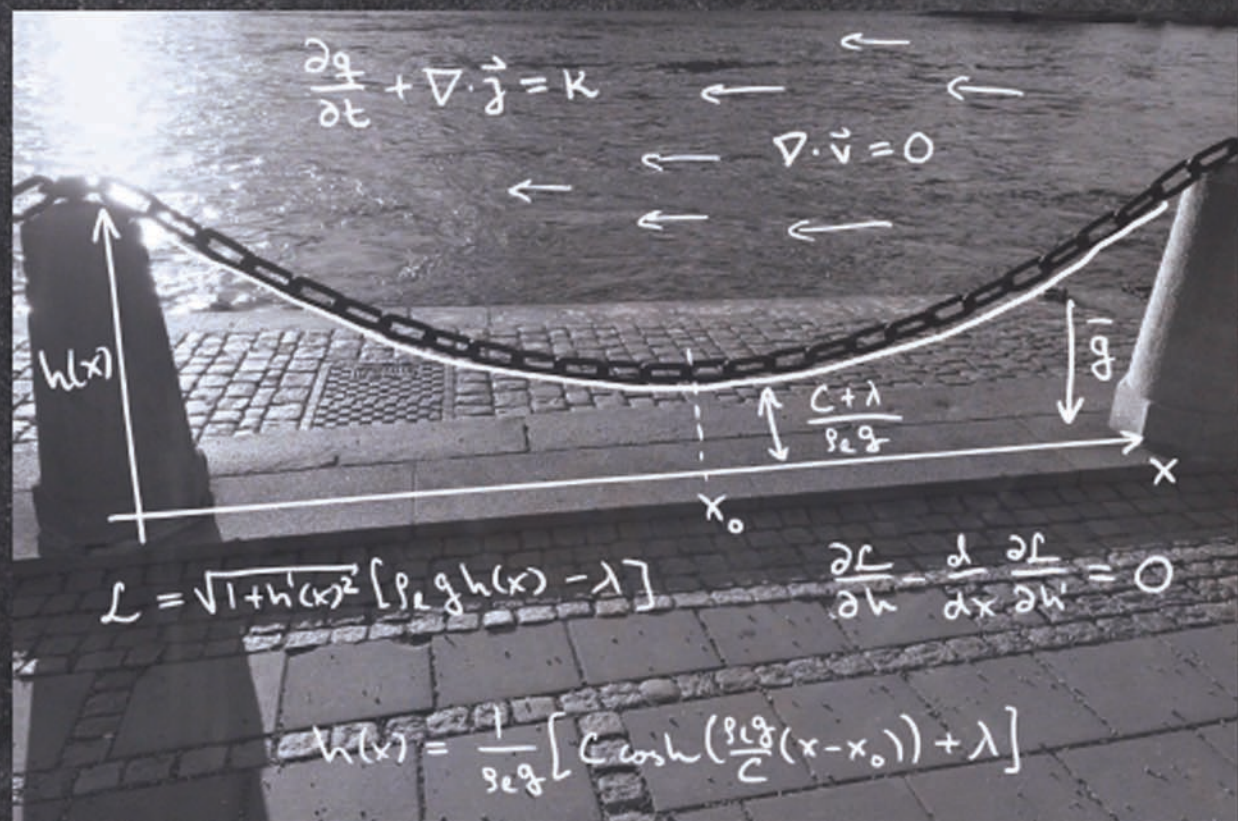 ∂q/∂t + ∇·j⃗ = K
∇·v⃗ = 0
h(x)
g̅
C+λ / ρₑg
x
x₀
ℒ = √(1+h'(x)²) [ρₑ g h(x) − λ]
∂ℒ/∂h − d/dx ∂ℒ/∂h' = 0
h(x) = 1/ρₑg [C cosh(ρₑg/C (x−x₀)) + λ]